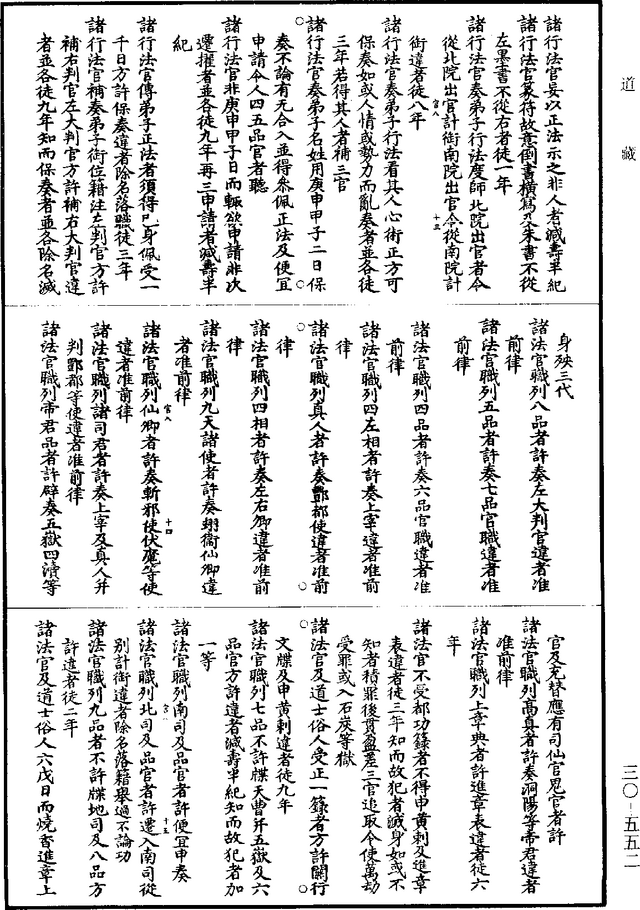 道藏
諸行法官妄以正法示之非人者減壽半紀
諸行法官篆符故意倒書橫寫及朱書不從
左墨書不從右者徒一年
諸行法官奏弟子行法度師北院出官者令
從北院出官計銜南院出官令從南院計
銜違者徒八年
諸行法官奏弟子行法看其人心術正方可
保奏如或人情或勢力而亂奏者並各徒
三年若得其人者補三官
諸行法官奏弟子名姓用庚申甲子二日保
奏不論有无合入並得參佩正法及便宜
申請令人四五品官者聽
諸行法官非庚申甲子日而輒欲申請非次
遷擢者並各徒九年再三申請者減壽半
紀
諸行法官傳弟子正法者須得己身佩受一
千日方許保奏違者除名落職徒三年
諸行法官補奏弟子銜位籍注左判官方許
補右判官左大判官方許補右大判官違
者並各徒九年知而保奏者並各除名減
身殃三代
諸法官職列八品者許奏左大判官違者准
前律
諸法官職列五品者許奏七品官職違者准
前律
諸法官職列四品者許奏六品官職違者准
前律
諸法官職列四左相者許奏上宰違者准前
律
諸法官職列真人者許奏酆都使違者准前
律
諸法官職列四相者許奏左右卿違者准前
律
諸法官職列九天諸使者許奏翊衛仙卿違
者准前律
諸法官職列仙卿者許奏斬邪使伏魔等使
違者准前律
諸法官職列諸司君者許奏上宰及真人并
判酆都等使違者准前律
諸法官職列帝君品者許辟奏五嶽四瀆等
官及充替應有司仙官鬼官者許
諸法官職列高真者許奏洞陽等帝君違者
准前律
諸法官職列上章典者許進章表違者徒六
年
諸法官不受都功籙者不得申黃剌及進章
表違者徒三年知而故犯者減身如或不
知者積罪後貫盈差三官追取令使萬劫
受罪或入石炭等獄
諸法官及道士俗人受正一籙者方許關行
文牒及申黃剌違者徒九年
諸法官職列七品不許牒天曹并五嶽及六
品官方許違者減壽半紀知而故犯者加
一等
諸法官職列南司及品官者許便宜申奏
諸法官職列北司及品官者許遷入南司從
別計銜違者除名落籍舉過不論功
諸法官職列九品者不許牒地司及八品方
許違者徒二年
諸法官及道士俗人六戊日而燒香進章上
三〇-五五二